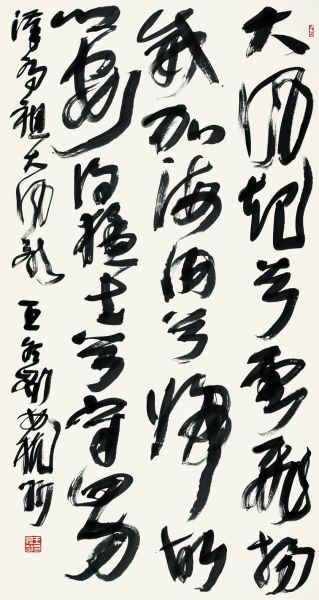 大風起兮雲飛揚
威加海内兮歸故
鄉安得猛士兮守四方
漢高祖大風歌 王冬齡